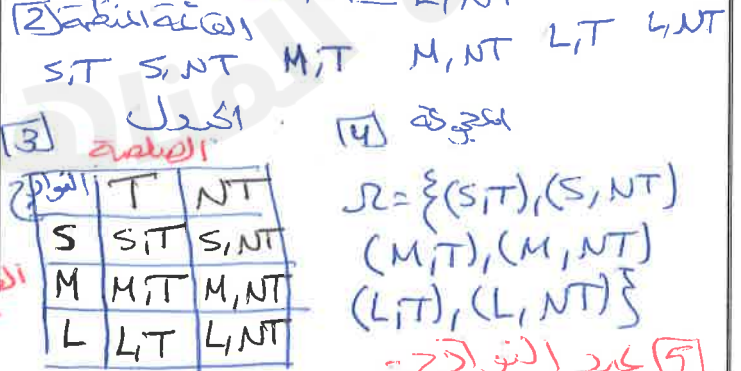 = L,NT
[2] القائمة المنظمة
S,T S,NT M,T M,NT L,T L,NT
[3] الجدول
الصلصة
النواتج T NT
S S,T S,NT
M M,T M,NT
L L,T L,NT
[4] المجموعة
Ω={(S,T),(S,NT)
(M,T),(M,NT)
(L,T),(L,NT)}
[5] عدد النواتج =